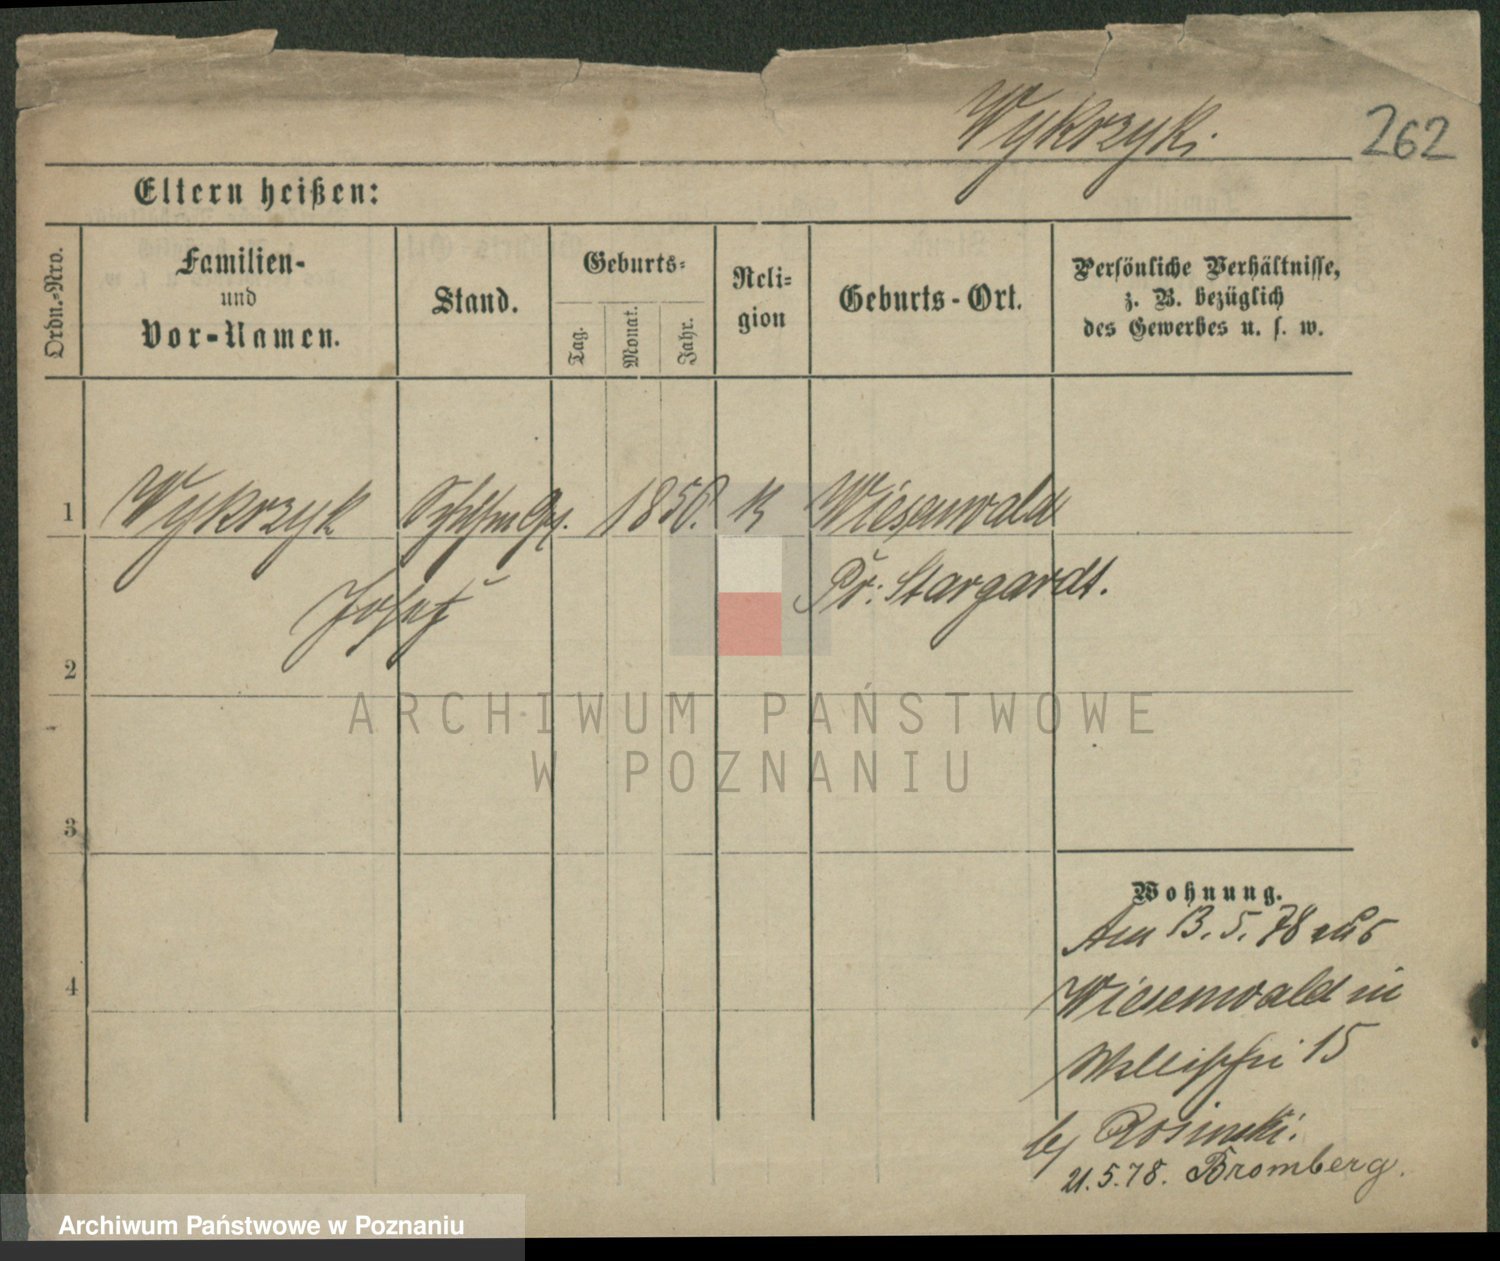 Wykrzyk.
262
Eltern heißen:
Ordn.-Nro.
Familien-
und
Vor-Namen.
Stand.
Geburts-
Tag.
Monat.
Jahr.
Reli-
gion
Geburts-Ort.
Persönliche Verhältnisse,
z. B. bezüglich
des Gewerbes u. s. w.
1 Wykrzyk 1856. K Wiesenwald
Josef Pr: Stargardt.
2
ARCHIWUM PAŃSTWOWE
W POZNANIU
3
Wohnung.
Am 13. 5. 78 aus
4
Wiesenwald in
Wallischei 15
bei Rosinski.
21.5.78. Bromberg.
Archiwum Państwowe w Poznaniu